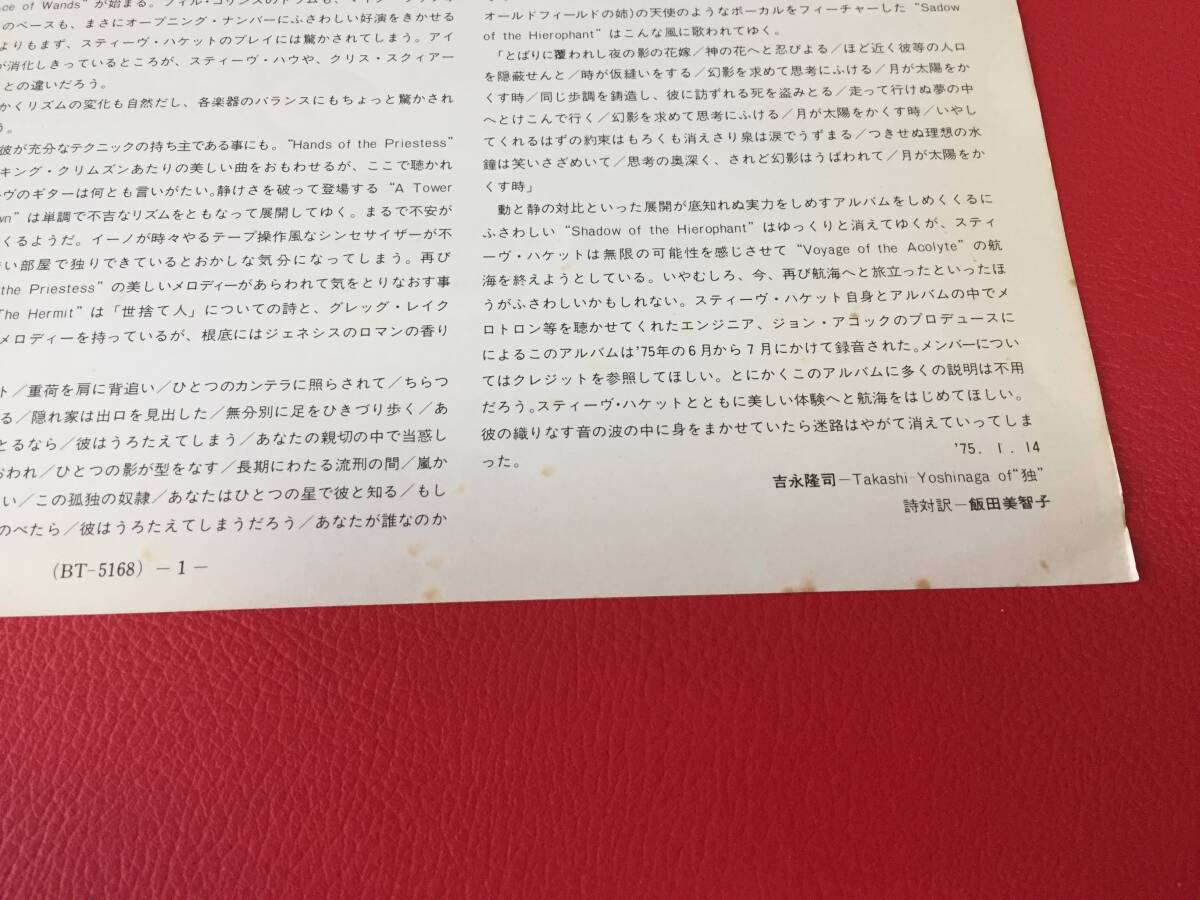 ce of Wands”が始まる。フィル・コリンズのドラムも、マイク・
のベースも、まさにオープニング・ナンバーにふさわしい好演をきかせる
よりもまず、スティーヴ・ハケットのプレイには驚かされてしまう。アイ
が消化しきっているところが、スティーヴ・ハウや、クリス・スクィアー
との違いだろう。
かくリズムの変化も自然だし、各楽器のバランスにもちょっと驚かされ
う。
彼が充分なテクニックの持ち主である事にも。“Hands of the Priestess”
キング・クリムズンあたりの美しい曲をおもわせるが、ここで聴かれ
ーヴのギターは何とも言いがたい。静けさを破って登場する “A Tower
wn”は単調で不吉なリズムをともなって展開してゆく。まるで不安が
くるようだ。イーノが時々やるテープ操作風なシンセサイザーが不
い部屋で独りできているとおかしな気分になってしまう。再び
the Priestess”の美しいメロディーがあらわれて気をとりなおす事
The Hermit”は「世捨て人」についての詩と、グレッグ・レイク
メロディーを持っているが、根底にはジェネシスのロマンの香り
ト/重荷を肩に背追い/ひとつのカンテラに照らされて/ちらつ
る/隠れ家は出口を見出した/無分別に足をひきづり歩く/あ
とるなら/彼はうろたえてしまう/あなたの親切の中で当惑し
おわれ/ひとつの影が型をなす/長期にわたる流刑の間/嵐か
い/この孤独の奴隷/あなたはひとつの星で彼と知る/もし
のべたら/彼はうろたえてしまうだろう/あなたが誰なのか
(BT-5168) -1-
オールドフィールドの姉)の天使のようなボーカルをフィーチャーした “Sadow
of the Hierophant”はこんな風に歌われてゆく。
「とばりに覆われし夜の影の花嫁/神の花へと忍びよる/ほど近く彼等の人口
を隠蔽せんと/時が仮縫いをする/幻影を求めて思考にふける/月が太陽をか
くす時/同じ歩調を鋳造し、彼に訪ずれる死を盗みとる/走って行けぬ夢の中
へとけこんで行く/幻影を求めて思考にふける/月が太陽をかくす時/いやし
てくれるはずの約束はもろくも消えさり泉は涙でうずまる/つきせぬ理想の水
鐘は笑いさざめいて/思考の奥深く、されど幻影はうばわれて/月が太陽をか
くす時」
動と静の対比といった展開が底知れぬ実力をしめすアルバムをしめくくるに
ふさわしい “Shadow of the Hierophant”はゆっくりと消えてゆくが、スティ
ーヴ・ハケットは無限の可能性を感じさせて “Voyage of the Acolyte”の航
海を終えようとしている。いやむしろ、今、再び航海へと旅立ったといったほ
うがふさわしいかもしれない。スティーヴ・ハケット自身とアルバムの中でメ
ロトロン等を聴かせてくれたエンジニア、ジョン・アコックのプロデュースに
によるこのアルバムは'75年の6月から7月にかけて録音された。メンバーについ
てはクレジットを参照してほしい。とにかくこのアルバムに多くの説明は不用
だろう。スティーヴ・ハケットとともに美しい体験へと航海をはじめてほしい。
彼の織りなす音の波の中に身をまかせていたら迷路はやがて消えていってしま
った。
'75. 1. 14
吉永隆司-Takashi-Yoshinaga of“独”
詩対訳-飯田美智子